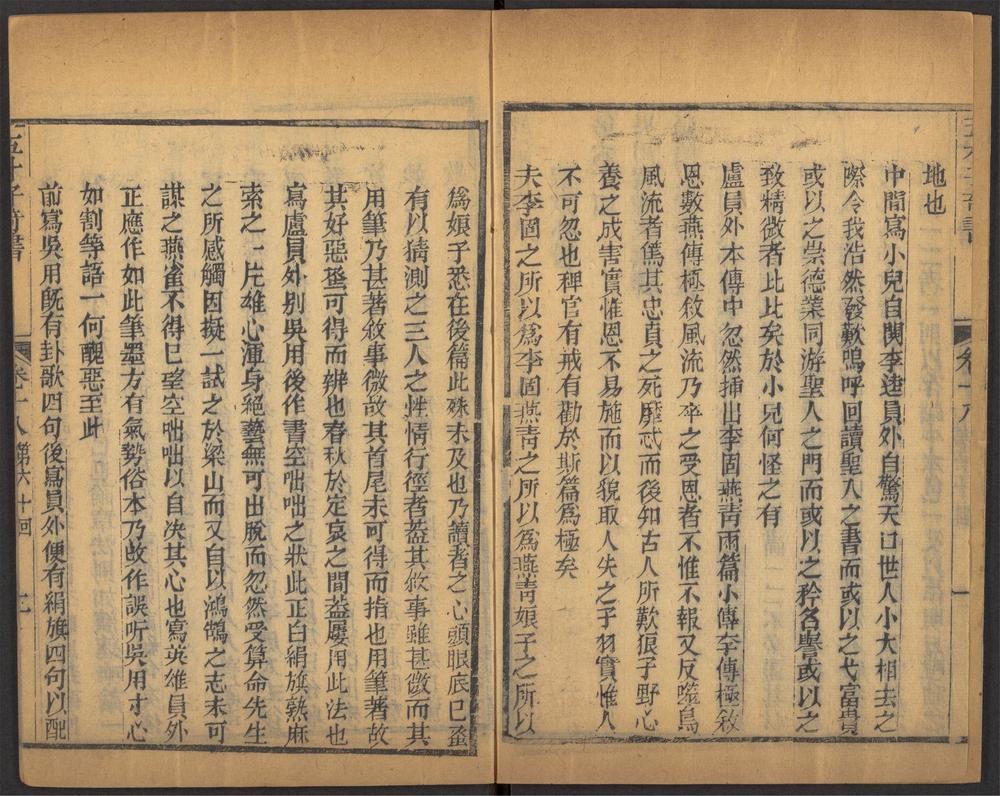 地也
中間寫小兒自閧李逵員外自驚天口世人小大相去之
際令我浩然發歎嗚呼回讀聖人之書而或以之弋富貴
或以之崇德業同游聖人之門而或以之矜名譽或以之
致精微者比比矣於小兒何怪之有
盧員外本傳中忽然插出李固燕青兩篇小傳李傳極敘
恩數燕傳極敘風流乃卒之受恩者不惟不報又反噬焉
風流者篤其忠貞之死靡忒而後知古人所歎狼子野心
養之成害實惟恩不易施而以貌取人失之子羽實惟人
不可忽也稗官有戒有勸於斯篇為極矣
夫李固之所以為李固燕青之所以為燕青娘子之所以
為娘子悉在後篇此殊未及也乃讀者之心頭眼底已蚤
有以猜測之三人之性情行徑者葢其敘事雖甚微而其
用筆乃甚著敘事微故其首尾未可得而指也用筆著故
其好惡蚤可得而辨也春秋於定哀之間葢屢用此法也
寫盧員外別吳用後作書空咄咄之狀此正白絹旗熟麻
索之一片雄心渾身絕藝無可出脫而忽然受算命先生
之所感觸因擬一試之於梁山而又自以鴻鵠之志未可
謀之燕雀不得已望空咄咄以自决其心也寫英雄員外
正應作如此筆墨方有氣勢俗本乃改作誤听吳用寸心
如割等語一何醜惡至此
前寫吳用既有卦歌四句後寫員外便有絹旗四句以配
卷十八 第六十回